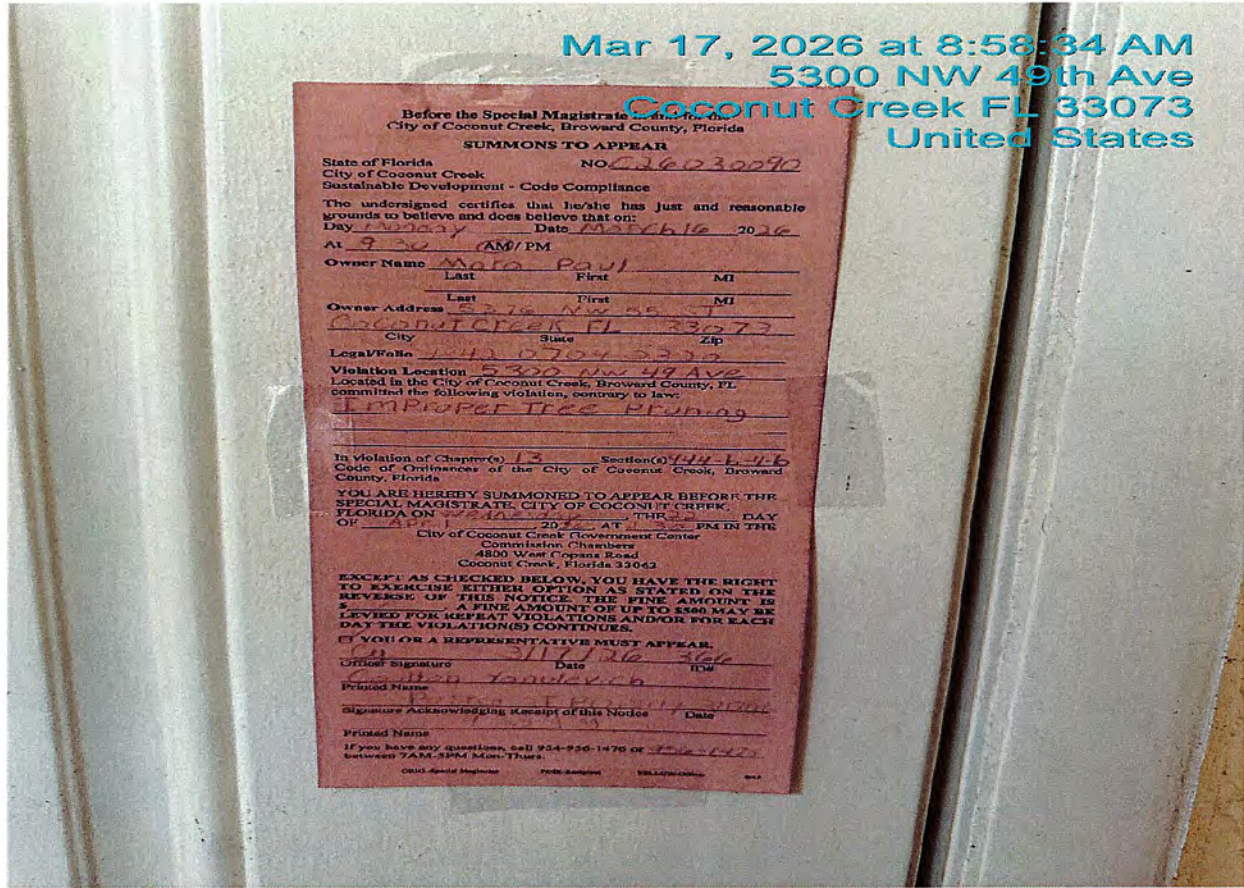 Mar 17, 2026 at 8:58:34 AM
5300 NW 49th Ave
Coconut Creek FL 33073
United States
Before the Special Magistrate
City of Coconut Creek, Broward County, Florida
SUMMONS TO APPEAR
State of Florida NO. C26030090
City of Coconut Creek
Sustainable Development - Code Compliance
The undersigned certifies that he/she has just and reasonable
grounds to believe and does believe that on:
Day Monday Date March 16 2026
At 9:30 (AM)/ PM
Owner Name Mora Paul
Last First MI
Last First MI
Owner Address 5376 NW 55 ST
Coconut Creek FL 33073
City State Zip
Legal/Folio
Violation Location 5300 NW 49 Ave
Located in the City of Coconut Creek, Broward County, FL
committed the following violation, contrary to law:
Improper Tree Pruning
In violation of Chapter(s) 13 Section(s) 444-b-4-b
Code of Ordinances of the City of Coconut Creek, Broward
County, Florida
YOU ARE HEREBY SUMMONED TO APPEAR BEFORE THE
SPECIAL MAGISTRATE, CITY OF COCONUT CREEK,
FLORIDA ON Wednesday, THE 22 DAY
OF April 2026 AT 1:30 PM IN THE
City of Coconut Creek Government Center
Commission Chambers
4800 West Copans Road
Coconut Creek, Florida 33063
EXCEPT AS CHECKED BELOW, YOU HAVE THE RIGHT
TO EXERCISE EITHER OPTION AS STATED ON THE
REVERSE OF THIS NOTICE. THE FINE AMOUNT IS
$ . A FINE AMOUNT OF UP TO $500 MAY BE
LEVIED FOR REPEAT VIOLATIONS AND/OR FOR EACH
DAY THE VIOLATION(S) CONTINUES.
YOU OR A REPRESENTATIVE MUST APPEAR.
3/17/26 366
Officer Signature Date ID#
Printed Name
Signature Acknowledging Receipt of this Notice Date
Printed Name
If you have any questions, call 954-956-1476 or
between 7AM-5PM Mon-Thurs.
ORIG-Special Magistrate PINK-Recipient YELLOW-Officer